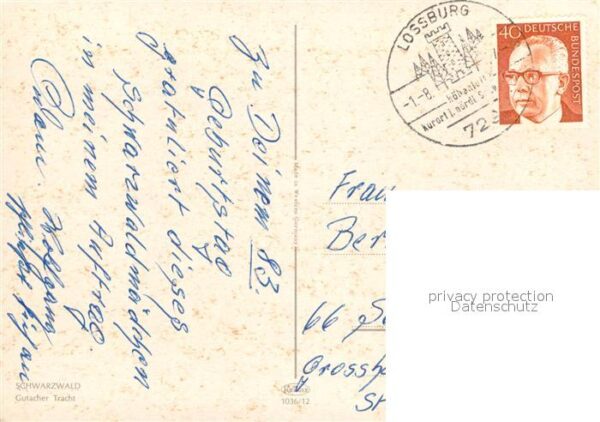 Zu Deinem 83.
Geburtstag
gratuliert dieses
Schwarzwaldmädchen
in meinem Auftrag.
Wolfgang
SCHWARZWALD
Gutacher Tracht
1036/12
LOSSBURG
-1.-8.
Höhen
kurort i. nördl. S
729
40 DEUTSCHE
BUNDESPOST
Frau
Ber
66 Sa
Grossh
St
privacy protection
Datenschutz